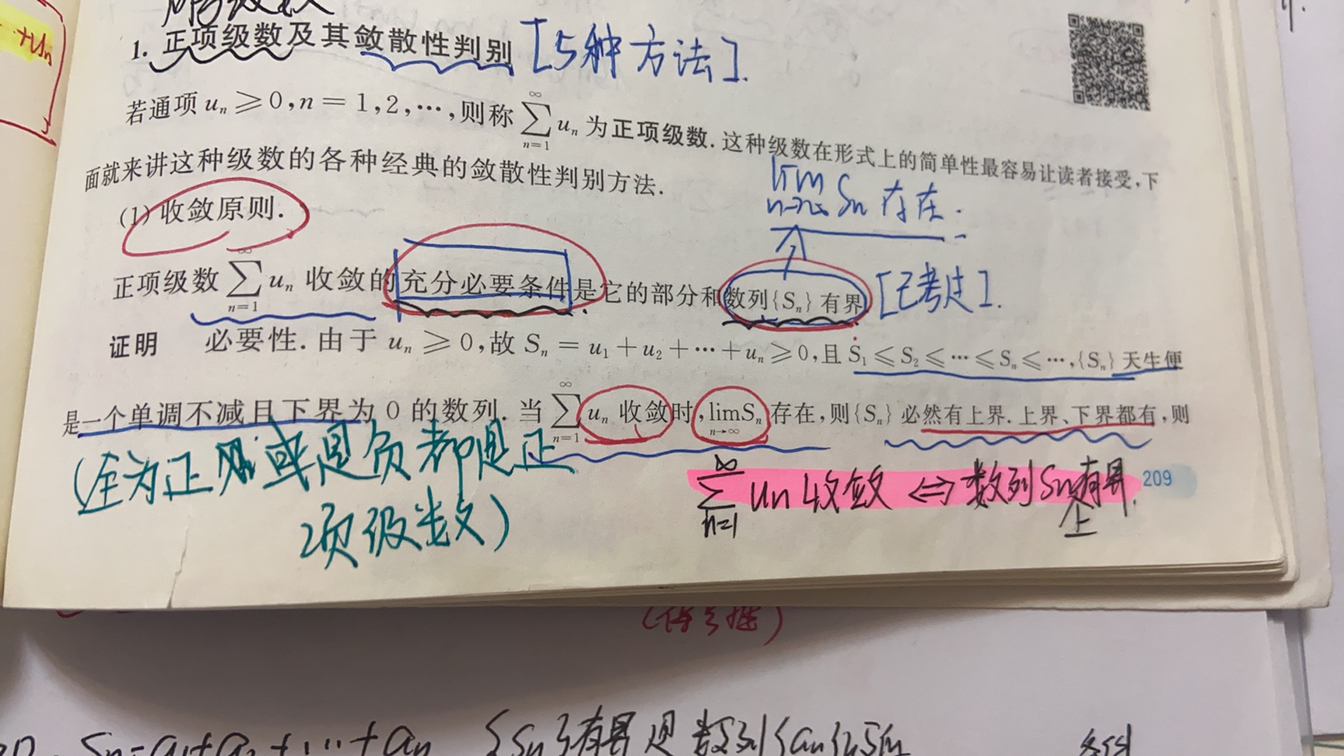 +Un
1. 正项级数及其敛散性判别 [5种方法].
若通项 uₙ ≥ 0, n = 1, 2, ⋯, 则称 ∑_{n=1}^{∞} uₙ 为正项级数. 这种级数在形式上的简单性最容易让读者接受, 下
面就来讲这种级数的各种经典的敛散性判别方法.
lim_{n→∞} Sn 存在.
(1) 收敛原则.
正项级数 ∑_{n=1}^{∞} uₙ 收敛的充分必要条件是它的部分和数列{Sₙ}有界 [已考过].
证明 必要性. 由于 uₙ ≥ 0, 故 Sₙ = u₁ + u₂ + ⋯ + uₙ ≥ 0, 且 S₁ ≤ S₂ ≤ ⋯ ≤ Sₙ ≤ ⋯, {Sₙ} 天生便
是一个单调不减且下界为 0 的数列. 当 ∑_{n=1}^{∞} uₙ 收敛时, lim_{n→∞} Sₙ 存在, 则{Sₙ} 必然有上界. 上界、下界都有, 则
(全为正或是负都是正
项级数)
∑_{n=1}^{∞} un 收敛 ⇔ 数列Sn有界
上
209
Sn=a1+a2+⋯+an {Sn}有界是数列{an}